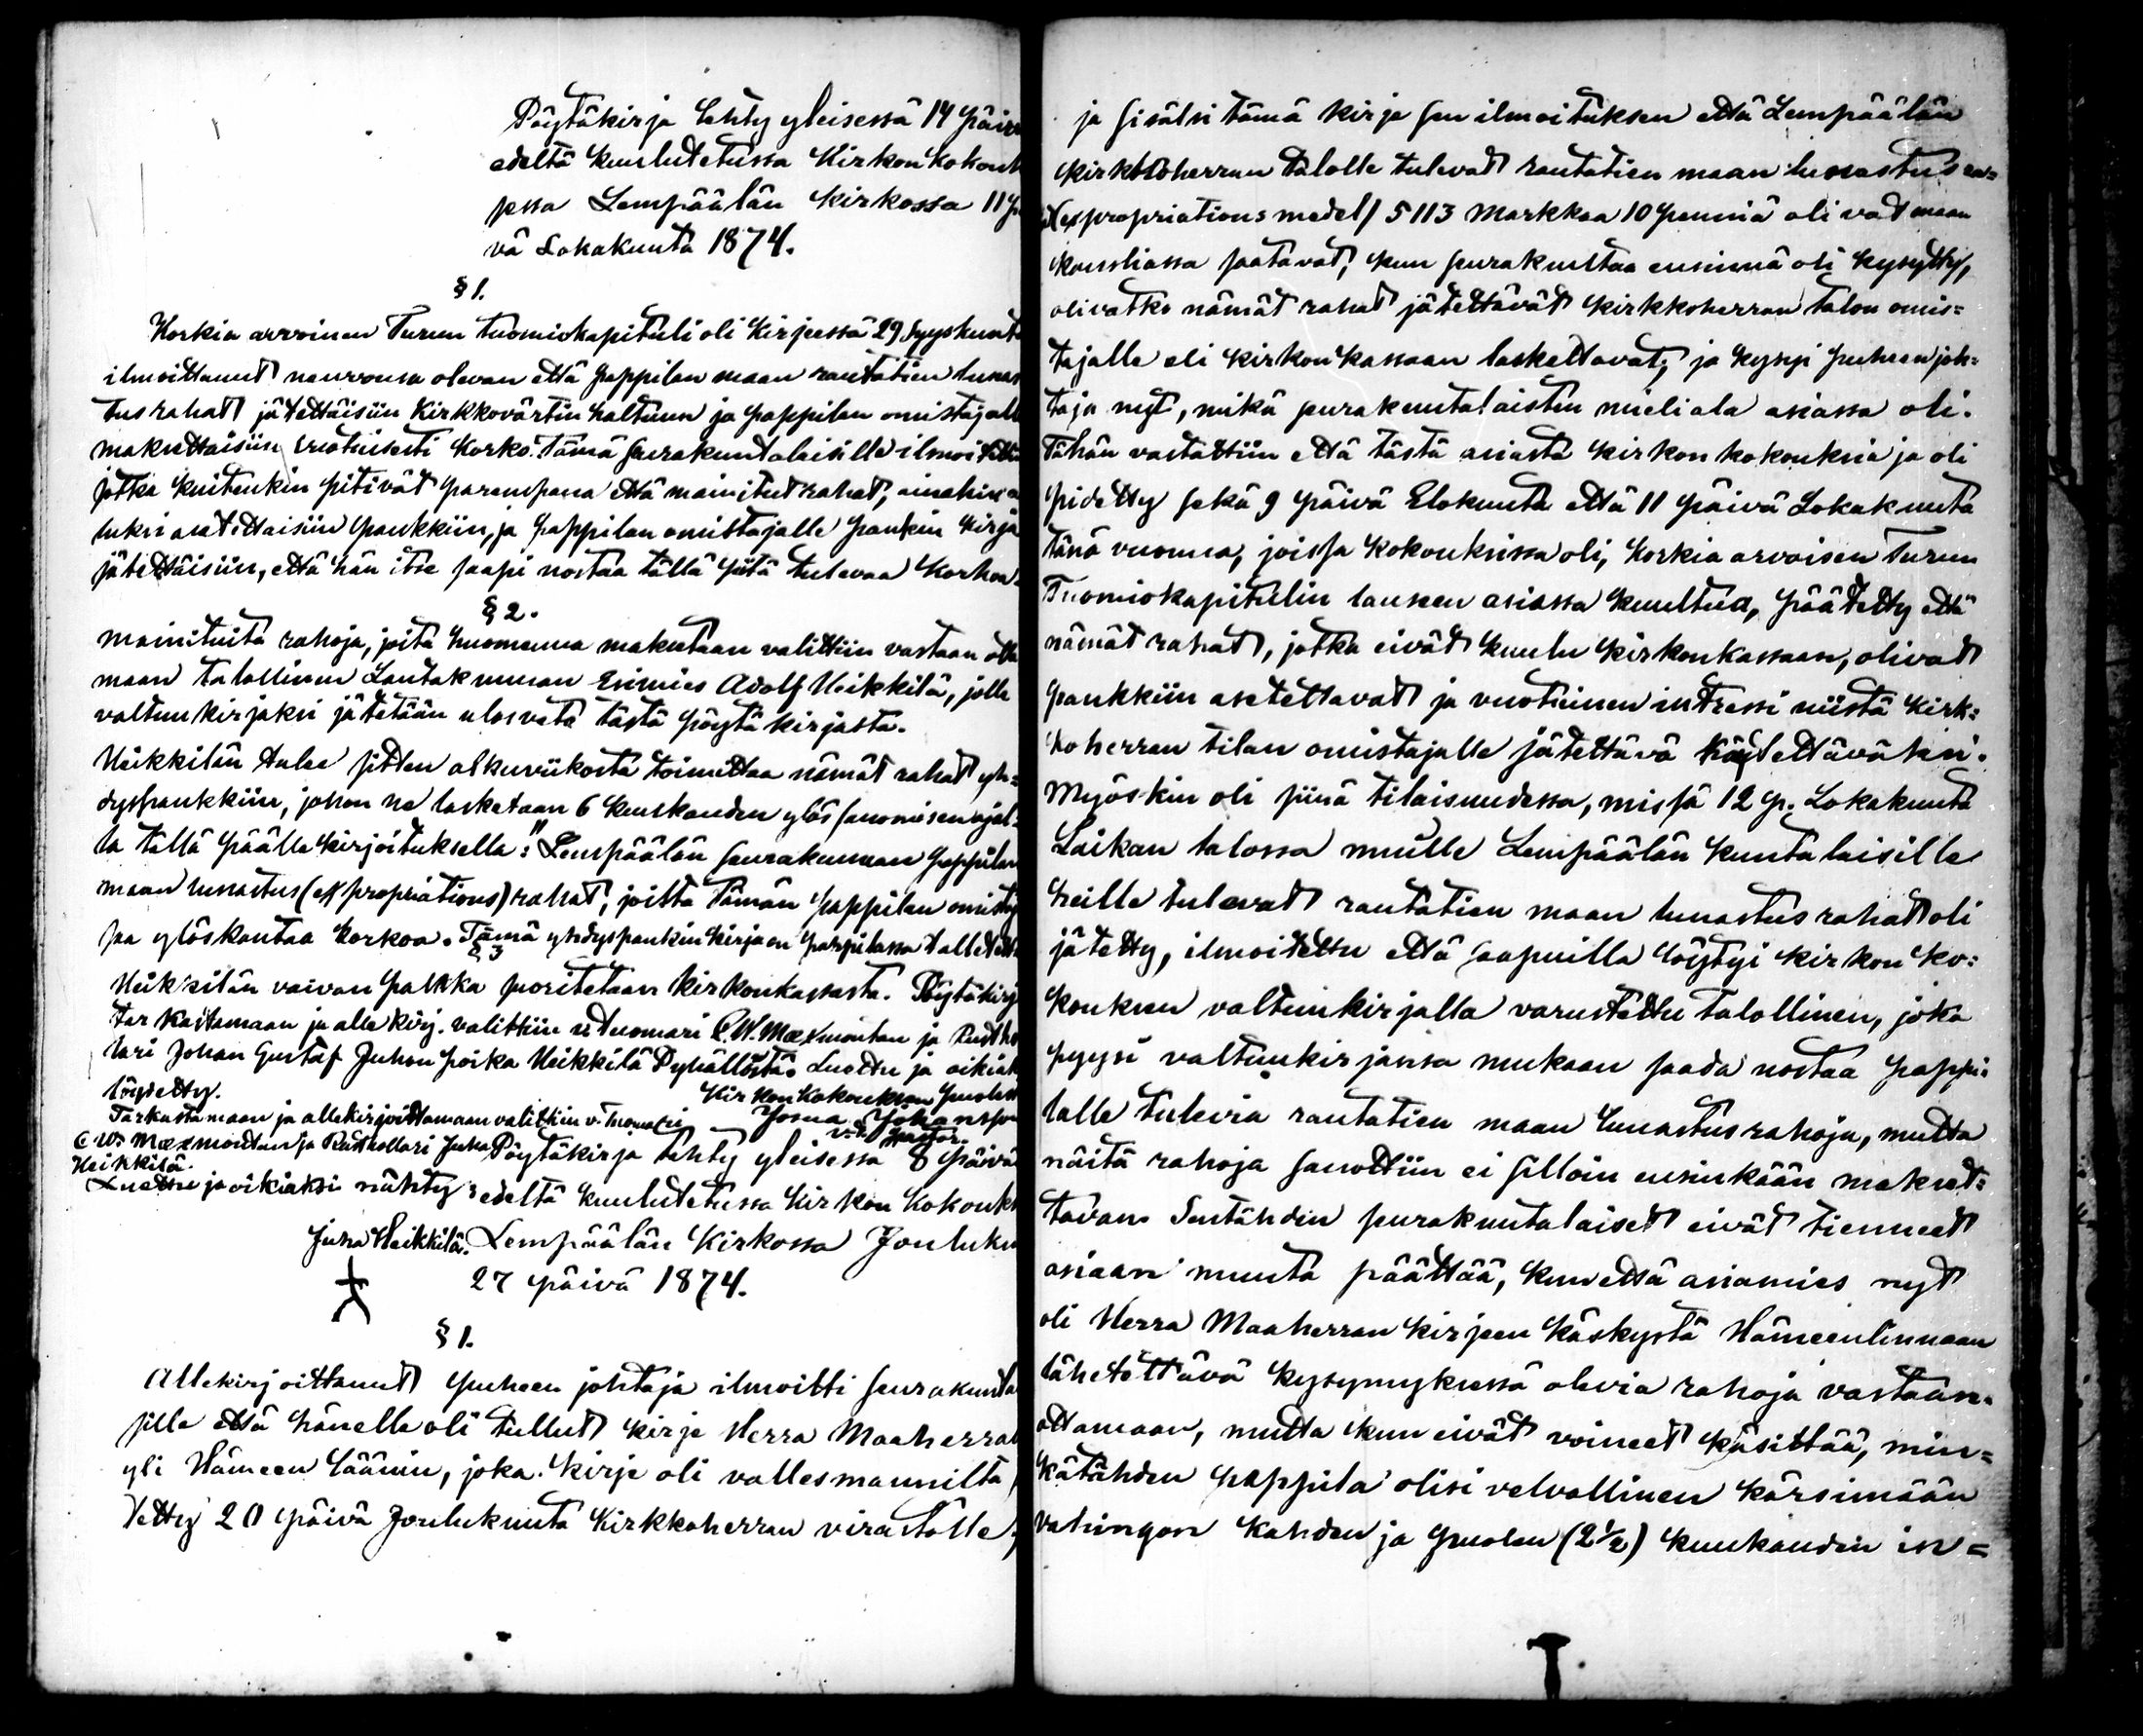 Pöytäkirja tehty yleisessä 14 päivä
edeltä kuulutetussa Kirkon Kokouk
sessa Lempäälän Kirkossa 11 p
vä Lokakuuta 1874.
§ 1.
Korkia arvoinen Turun tuomiokapituli oli Kirjeessä 29 Syyskuuta
ilmoittanut neuvonsa olevan että pappilan maan rautatien lunas
tusrahat jätettäisiin Kirkkovärtin haltuun ja pappilan omistajalle
maksettaisiin vuotuisesti korko. Tämä seurakuntalaisille ilmoitettiin
jotka kuitenkin pitivät parempana että mainitut rahat,
luksi asetettaisiin pankkiin, ja pappilan omistajalle pankin kirja
jätettäisiin, että hän itse saapi nostaa tällä siitä tulevaa korkoa.
§ 2.
Mainituita rahoja, joita huomenna maksetaan valittiin vastaan otta
maan talollinen Lautakunnan Esimies Adolf Heikkilä, jolle
valtuuskirjaksi jätetään ulosveto tästä pöytäkirjasta.
Heikkilän tulee sitten alkuviikosta toimittaa nämät rahat yh=
dyspankkiin, johon ne lasketaan 6 kuukauden ylössanomisen ajal=
la tällä päällekirjoituksella: "Lempäälän seurakunnan pappilan
maan lunastus (expropriations) rahat, joilta Tämän pappilan omistaja
saa ylöskantaa korkoa. Tämä yhdyspankin kirja on pappilassa talletett
§ 3
Heikkilän vaivan palkka suoritetaan kirkonkassasta. Pöytäkirj
tarkastamaan ja allekirj. valittiin v tuomari C. W. Mæxmontan ja Rustho
lari Johan Gustaf Juhon poika Heikkilä Pyhällöstä. Luettu ja oikiak
löydetty.
Kirkon Kokouksen puolest
Josua Johansson
v. t. pastor.
Tarkastamaan ja allekirjoittamaan valittiin v. Tuomari
C. W. Mæxmontan ja Rusthollari Juha
Heikkilä.
Luettu ja oikiaksi nähty:
Juha Heikkilä.
Pöytäkirja tehty yleisessä 8 päivä
edeltä kuulutetussa Kirkon Kokouks
Lempäälän Kirkossa Jouluku
27 päivä 1874.
§ 1.
Allekirjoittanut puheen johtaja ilmoitti seurakunta
sille että hänelle oli tullut kirje Herra Maaherral
yli Hämeen läänin, joka kirje oli vallesmannilta
tetty 20 päivä Joulukuuta Kirkkoherran virastolle,
ja sisälsi tämä kirje sen ilmoituksen että Lempäälän
kirkkoherran talolle tulevat rautatien maan lunastus ra=
(expropriations medel) 5113 Markkaa 10 penniä olivat maan
konsliassa saatavat, kun seurakuntaa ensinnä oli kysytty,
olivatko nämät rahat jätettävät kirkkoherran talon omis=
tajalle eli kirkon kassaan laskettavat; ja kysyi puheenjoh=
taja nyt, mikä seurakuntalaisten mieliala asiassa oli.
Tähän vastattiin että tästä asiasta kirkon kokouksia jo oli
pidetty sekä 9 päivä Elokuuta että 11 päivä Lokakuuta
tänä vuonna, joissa kokouksissa oli, korkia arvoisen Turun
Tuomiokapitulin lauseen asiassa kuultua, päätetty että
nämät rahat, jotka eivät kuulu kirkonkassaan, olivat
pankkiin asetettavat ja vuotuinen intressi niistä kirk=
koherran tilan omistajalle jätettävä käytettäväksi.
Myöskin oli siinä tilaisuudessa, missä 12 p. Lokakuuta
Laikan talossa muille Lempäälän kuntalaisille
heille tulevat rautatien maan lunastus rahat oli
jätetty, ilmoitettu että saapuilla löytyi kirkon ko=
kouksen valtuuskirjalla varustettu talollinen, joka
pyysi valtuuskirjansa mukaan saada nostaa pappi=
lalle tulevia rautatien maan lunastusrahoja, mutta
näitä rahoja sanottiin ei silloin ensinkään makset=
tavan. Sentähden seurakuntalaiset eivät tienneet
asiaan muuta päättää, kun että asiamies nyt
oli Herra Maaherran kirjeen käskystä Hämeenlinnaan
lähetettävä kysymyksessä olevia rahoja vastaan=
ottamaan, mutta kun eivät voineet käsittää, min=
kätähden pappila olisi velvollinen kärsimään
vahingon kahden ja puolen (2 1/2) kuukauden in=